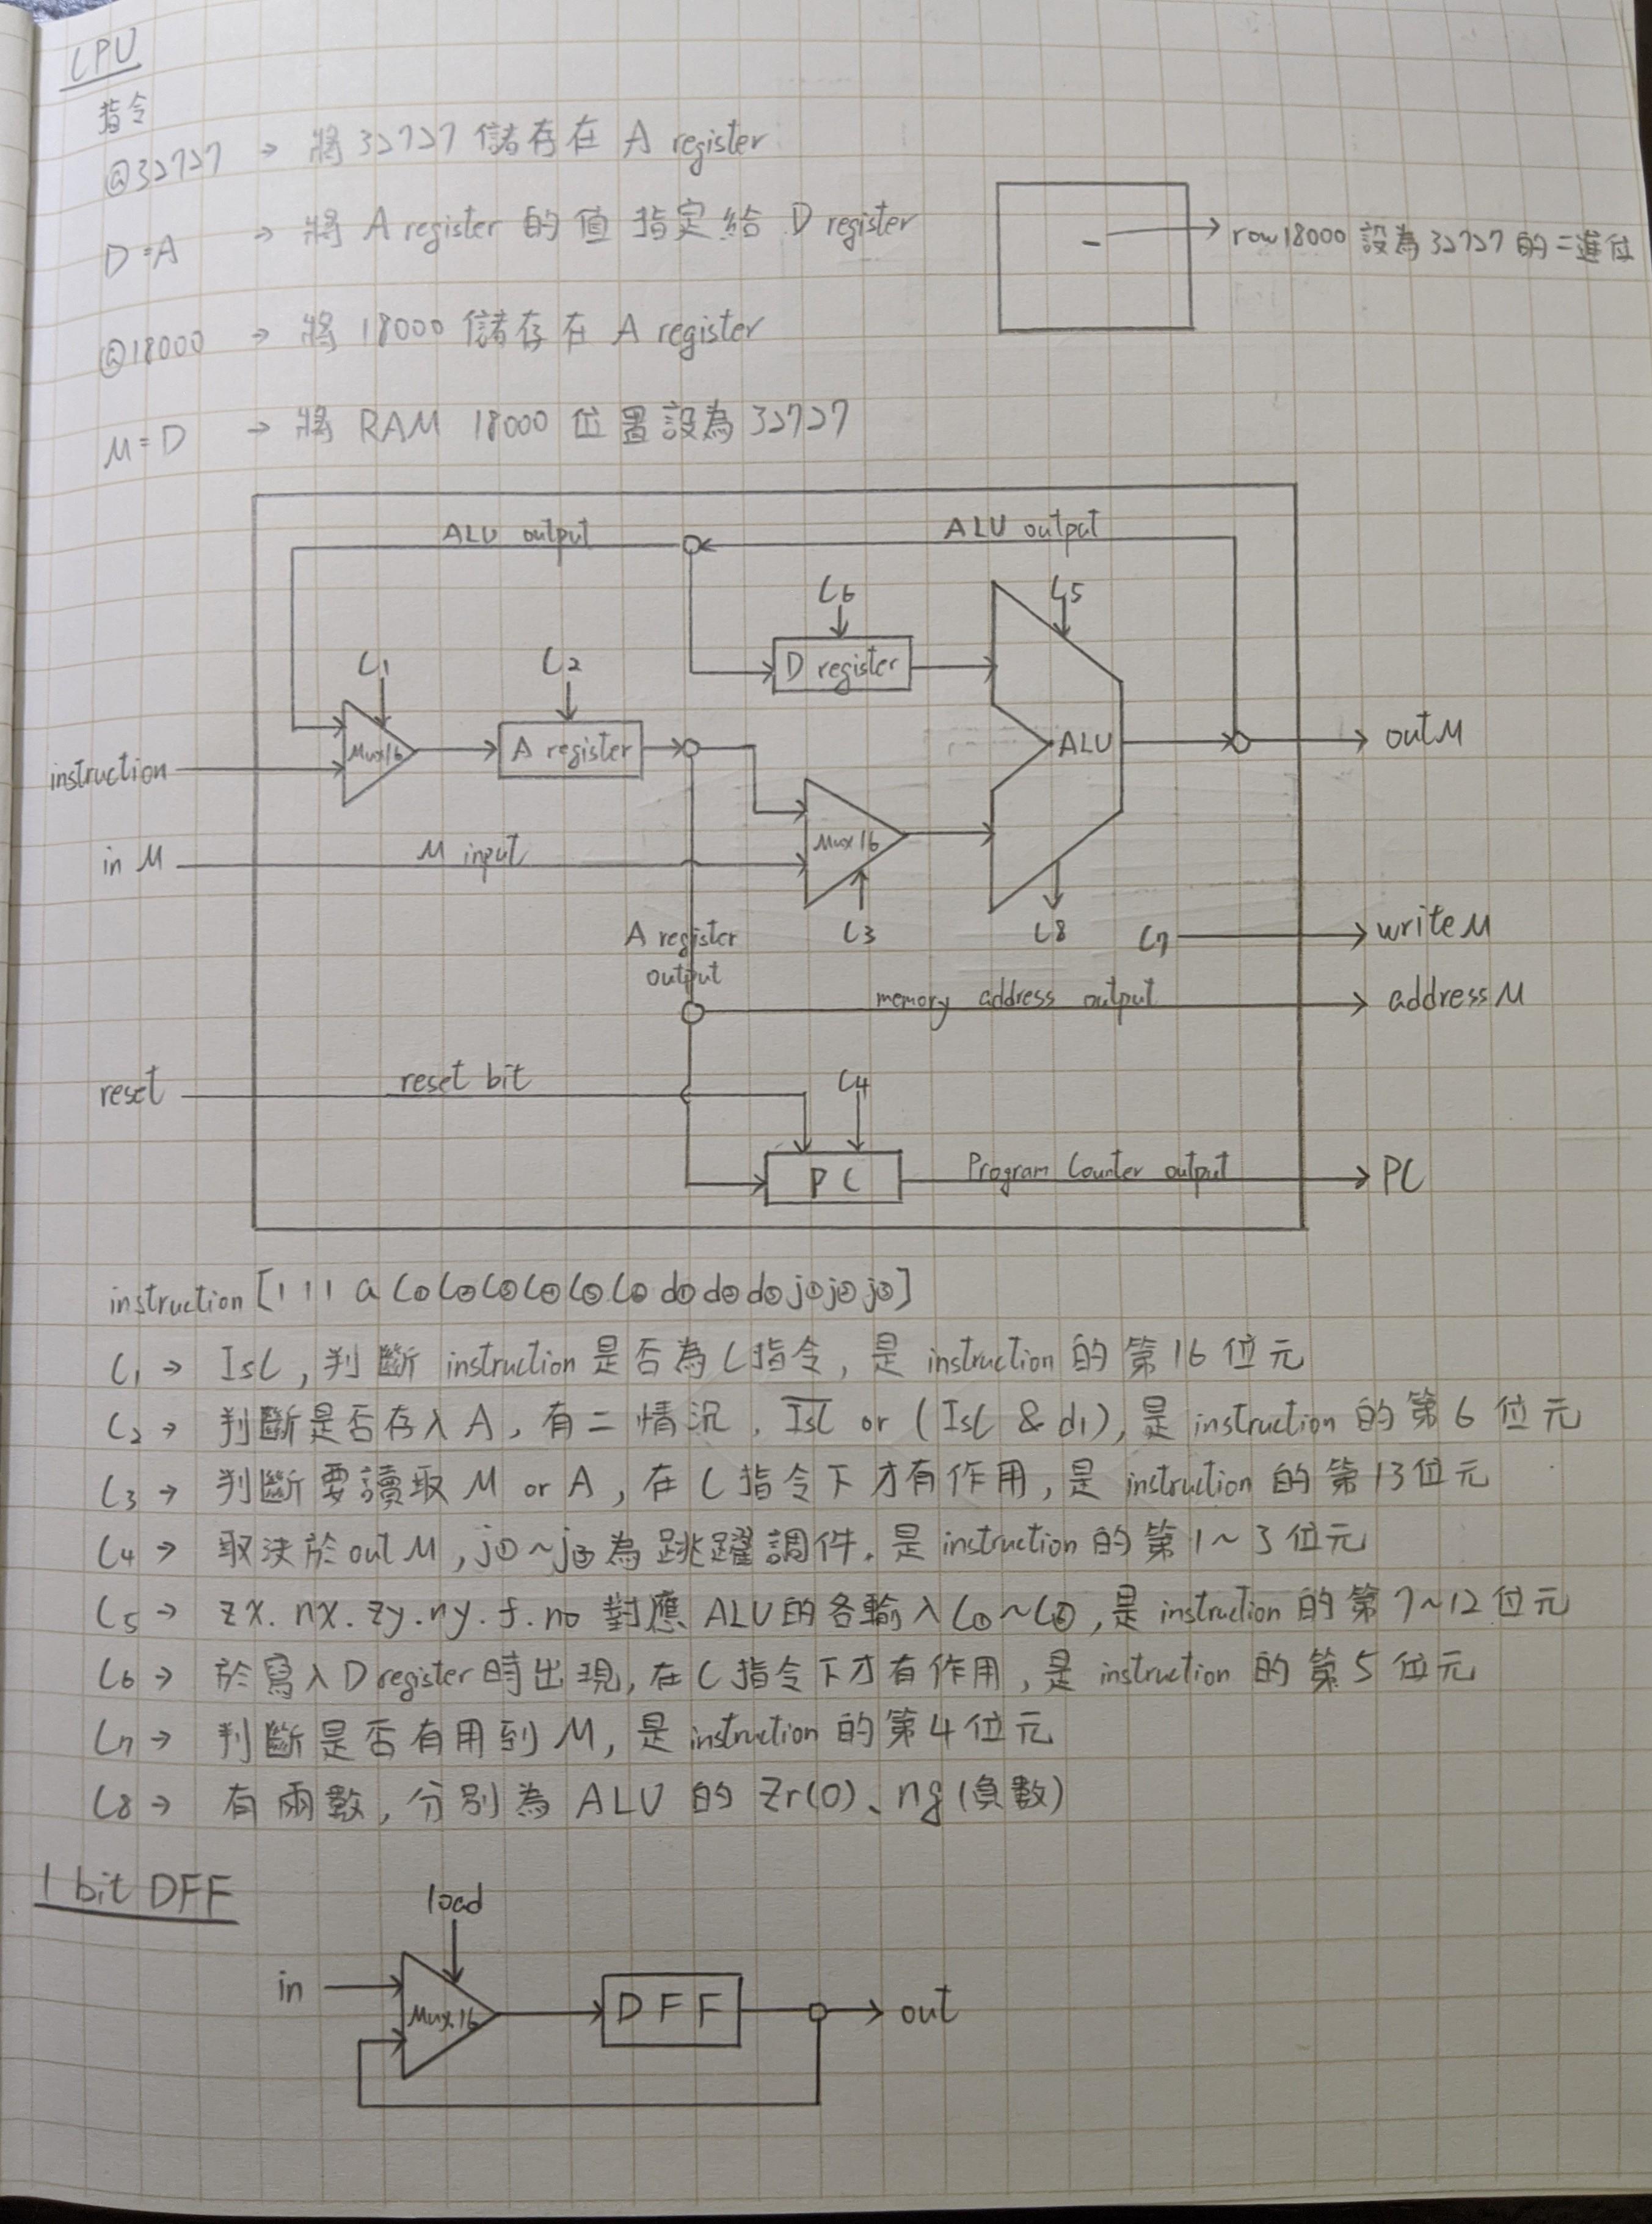 CPU
指令
@32727 → 將 32727 儲存在 A register
D=A → 將 A register 的值指定給 D register
row18000 設為 32727 的二進位
@18000 → 將 18000 儲存在 A register
M=D → 將 RAM 18000 位置設為 32727
ALU output
ALU output
C6
C5
C1
C2
D register
Mux16
A register
ALU
outM
instruction
Mux16
in M
M input
C3
C8
C7
writeM
A register
output
memory address output
addressM
reset
reset bit
C4
PC
Program Counter output
PC
instruction [1 1 1 a C① C② C③ C④ C⑤ C⑥ d① d② d③ j① j② j③]
C1 → IsC, 判斷 instruction 是否為 C指令, 是 instruction 的第16位元
C2 → 判斷是否存入 A, 有二情況, I̅s̅C̅ or (IsC & d1), 是 instruction 的第 6 位元
C3 → 判斷要讀取 M or A, 在 C 指令下才有作用, 是 instruction 的第13位元
C4 → 取決於 out M, j①~j③為跳躍調件. 是 instruction 的第 1~3 位元
C5 → zx. nx. zy. ny. f. no 對應 ALU的各輸入 C①~C⑥, 是 instruction 的第 7~12 位元
C6 → 於寫入 D register 時出現, 在 C 指令下才有作用, 是 instruction 的第 5 位元
C7 → 判斷是否有用到 M, 是 instruction 的第 4 位元
C8 → 有兩數, 分別為 ALU 的 zr(0)、ng(負數)
1 bit DFF
load
in
Mux16
DFF
out